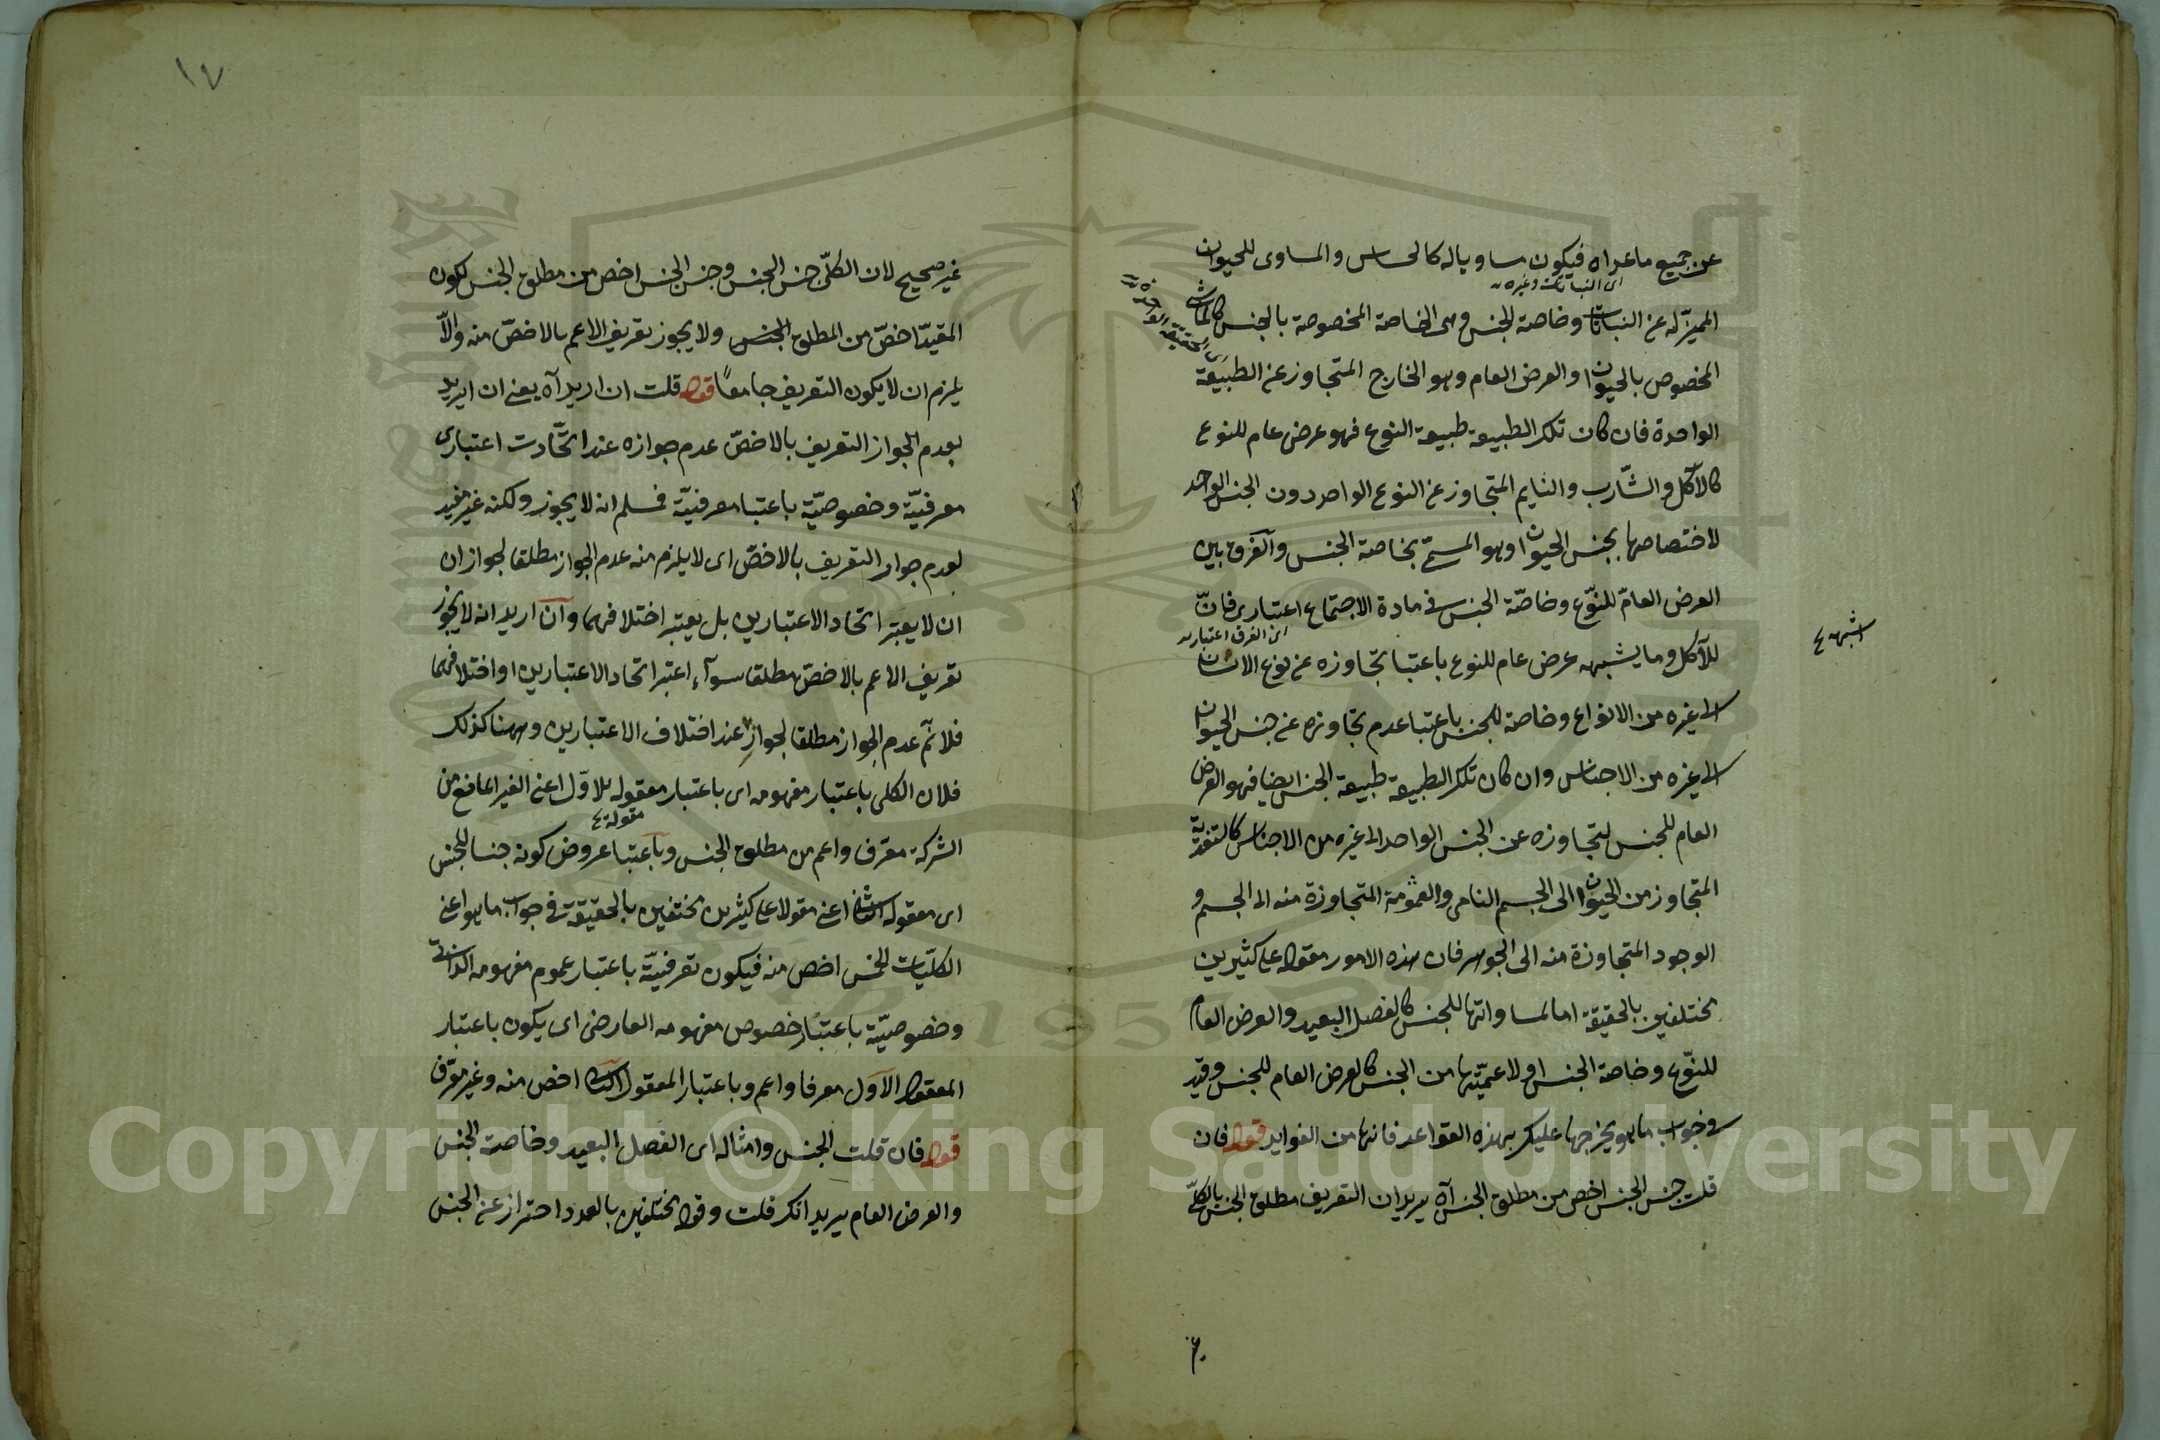 عن جميع ماعداه فيكون مساويا له كالحساس والمساوى للحيوان
اى النباتات وغيره
المميز له عن النباتات وخاصة الجنس وهى الخاصة المخصوصة بالجنس كالماشى
المخصوص بالحيوان والعرض العام وهو الخارج المتجاوز عن الطبيعة
اى الحقيقة الواحدة
الواحدة فان كان تلك الطبيعة طبيعة النوع فهو عرض عام للنوع
كالآكل والشارب والنايم المتجاوز عن النوع الواحد دون الجنس الواحد
لاختصاصها بجنس الحيوان وهو المسمى بخاصة الجنس والفرق بين
العرض العامّ للنوّع وخاصّة الجنس فى مادة الاجتماع اعتبارى فانّ
اى الفرق اعتبارى
للآكل وما يشبهه عرض عام للنوع باعتبا تجاوزه عن نوع الانسان
اشبهه
الى غيره من الانواع وخاصة للجنس باعتبا عدم تجاوزه عن جنس الحيوان
الى غيره من الاجناس وان كان تلك الطبيعة طبيعة الجنس ايضا فهو العرض
العام للجنس لتجاوزه عن الجنس الواحد الى غيره من الاجناس كالتغذية
المتجاوز من الحيوان الى الجسم النامى والعمومة المتجاوزة منه الى الجسم و
الوجود المتجاوزة منه الى الجوهر فان هذه الامور مقولة على كثيرين
مختلفين بالحقيقة اما لمساواتها للجنس كالفصل البعيد والعرض العام
للنوّع وخاصة الجنس اولا عميّتها من الجنس كالعرض العام للجنس وقيد
وجواب ما هو يخرجها عليك بهذه القواعد فانها من الفوايد قوله فان
قلت جنس الجنس اخص من مطلق الجنس آه يريد ان التعريف مطلق الجنس بالكلّى
غير
١٧
غير صحيح لان الكلّى جنس الجنس وجنس الجنس اخص من مطلق الجنس لكون
المقيّد اخصّ من المطلق الجنس ولا يجوز تعريف الاعم بالاخصّ منه والّا
يلزم ان لا يكون التعريف جامعًا قوله قلت ان اريد آه يعنى ان اريد
بعدم الجواز التعريف بالاخصّ عدم جوازه عند اتّحادت اعتبارى
معرفيّة وخصوصيّة باعتبا معرفيّة فمسلم انه لا يجوز ولكنه غير مفيد
لعدم جواز التعريف بالاخصّ اى لا يلزم منه عدم الجواز مطلقا لجواز ان
ان لا يعتبر اتحاد الاعتبارين بل يعتبر اختلافهما وان اريد انه لا يجوز
تعريف الاعم بالاخصّ مطلقا سوآء اعتبر اتحاد الاعتبارين او اختلافهما
فلا ثم عدم الجواز مطلقا لجوازه عند اختلاف الاعتبارين وههنا كذلك
فلان الكلى باعتبار مفهومه اى باعتبار معقوله للاوّل اعنى الغير المانع من
الشركة معرف واعم من مطلق الجنس وباعتبا عروض كونه جنسا للجنس
مقولة
اى معقوله الثانى اعنى مقولا على كثيرين مختفين بالحقيقة فى جواب ما هو اعنى
الكليّات الخمس اخص منه فيكون تعرفيّة باعتبار عموم مفهومه الذاتى
وخصوصيّة باعتبار خصوص مفهومه العارضى اى يكون باعتبار
المعقول الاول معرفا واعم وباعتبار المعقول الثانى اخص منه وغير معرّف
قوله فان قلت الجنس وامثاله اى الفصل البعيد وخاصة الجنس
والعرض العام يريد انك قلت وقوله مختلفين بالعدد احتراز عن الجنس